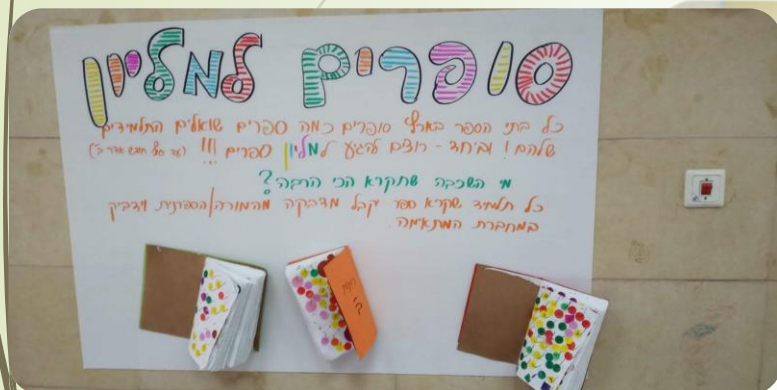 סופרים למליון
כל בתי הספר בארץ סופרים כמה ספרים שואלים התלמידים
שלהם! וביחד - רוצים להגיע למליון ספרים !!! (עד סוף חודש אדר ב')
מי השכבה שתקרא הכי הרבה?
כל תלמיד שקרא ספר יקבל מדבקה מהמורה/הספרנית וידביק
במחברת המתאימה.